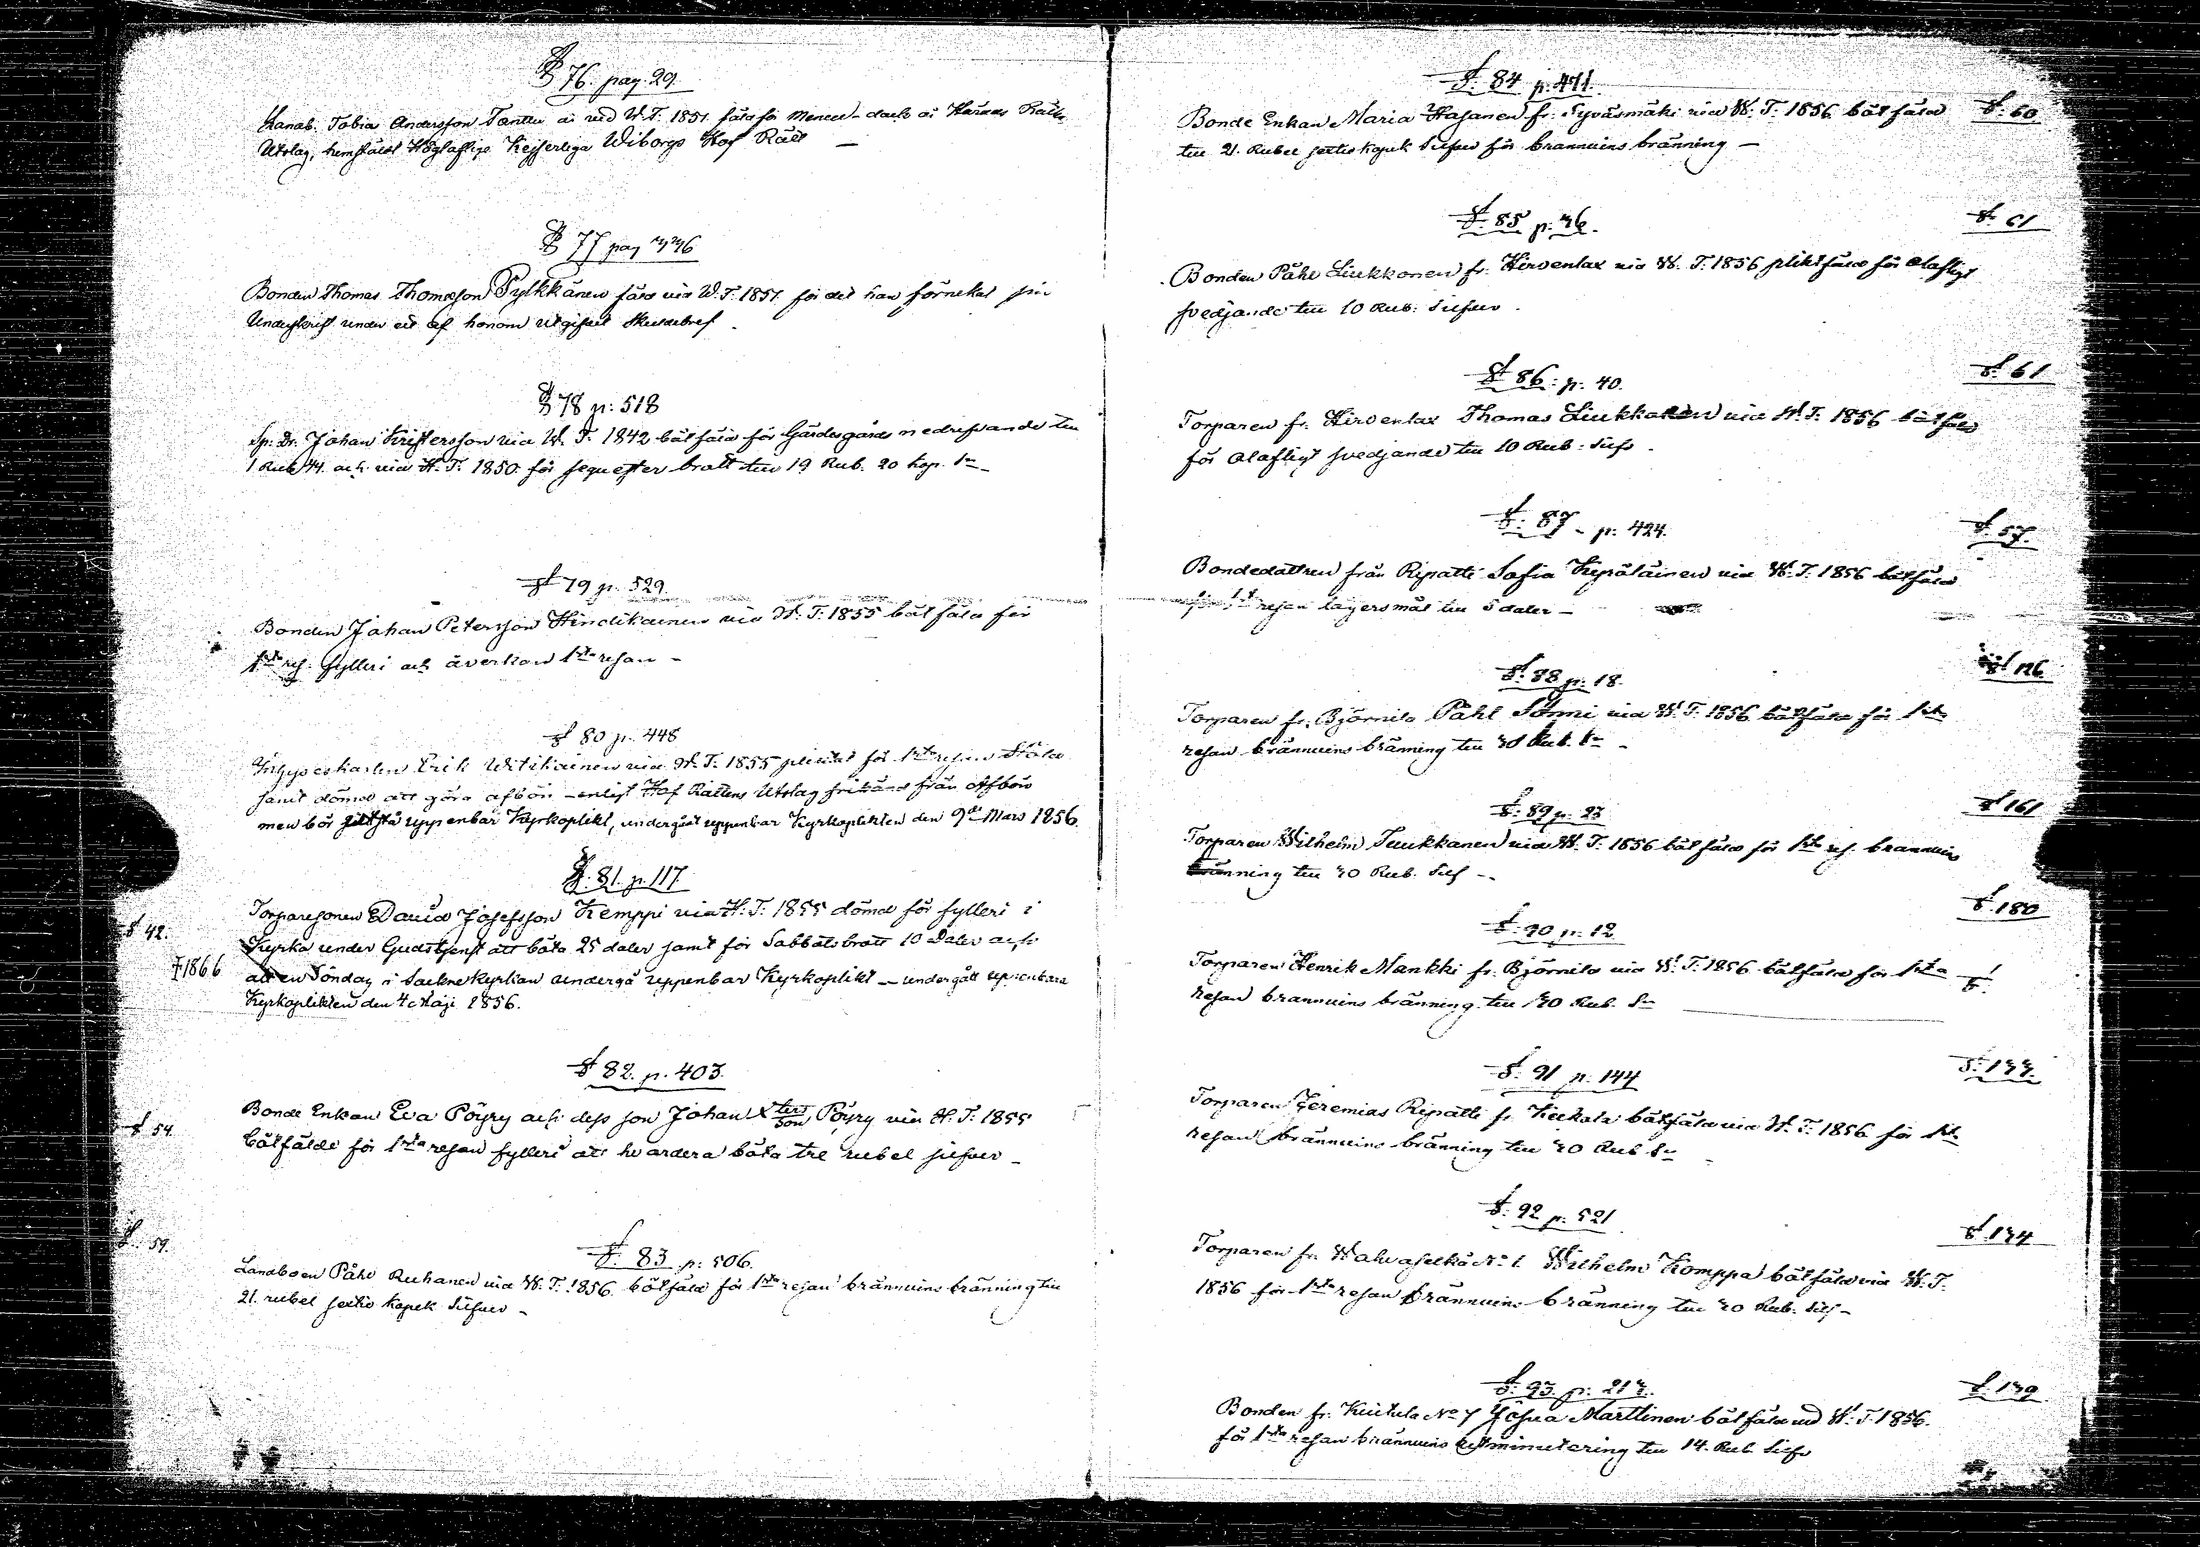 § 76. pag. 29
Landb. Tobias Andersson Tanttu är vid W. T. 1851. fäld för Mened - dock är Härads Rättens
Utslag, hemstäldt Höglofliga Kejserliga Wiborgs Hof Rätt —
§ 77 pag 446
Bonden Thomas Thomasson Pylkkänen fäld vid W. T. 1851. för det han förnekat sin
Underskrift under ett af honom utgifvet Skuldebref.
§ 78 p: 518
Sp. Dr. Johan Kristersson vid W. T. 1842 bötfäld för Gärdesgårds nedrifvande till
1 Rub. 44. och vid H. T. 1850. för sequester brott till 19 Rub. 20 kop. Sr —
§ 79 p. 529.
Bonden Johan Petersson Hindikainen vid W. T. 1855 bötfäld för
1sta res. fylleri och åverkan 1sta resan —
§ 80 p. 448
Inhyseskarlen Erik Witikainen vid W. T. 1855 pliktat för 1sta resan Stöld
samt dömd att göra afbön - enligt Hof Rättens Utslag frikänd från Afbön
men bör utstå uppenbar Kyrkoplikt, undergått uppenbar Kyrkoplikten den 9de Mars 1856.
§. 81. p. 117
Torparesonen David Josefsson Kemppi vid H. T. 1855 dömd för fylleri i
§ 42.
Kyrka under Gudstjenst att böta 25 daler samt för Sabbatsbrott 10 Daler och
† 1866
att en Söndag i Sockne kyrkan undergå uppenbar Kyrkoplikt — undergått uppenbara
Kyrkoplikten den 4 Maji 1856.
§ 82. p. 403.
Bonde Enkan Eva Pöyry och dess son Johan Xtersson Pöyry vid H. T. 1855
§ 54.
bötfälde för 1sta resan fylleri att hvardera böta tre rubel silfver —
§. 59.
§. 83 p: 506.
Landboen Påhl Ruhanen vid W. T. 1856. bötfäld för 1sta resan brännvins bränning till
21. rubel sextio kopek Silfver —
§. 84 p. 471.
Bonde Enkan Maria Hasanen fr. Syväsmäki vid W. T. 1856 bötfäld §. 60
till 21. Rubel sextio kopek Silfver för brännvins bränning —
§. 85 p: 46. §. 61
Bonden Påhl Liukkonen fr. Hirvenlax vid W. T. 1856 pliktfäld för olofligt
svedjande till 10 Rub: Silfver.
§ 86: p. 40. §. 61
Torparen fr. Hirvenlax Thomas Liukkonen vid W. T. 1856 bötfäld
för olofligt svedjande till 10 Rub. Silfv.
§. 87 - p: 424. §. 57.
Bondedottren från Ripatti Sofia Kypäläinen vid W. T. 1856 bötfäld
för 1sta resan lägersmål till 5 daler —
§. 88 p: 18. § 126.
Torparen fr. Björnilä Påhl Sonni vid W. T. 1856 bötfäld för 1sta
resan brännvins bränning till 30 Rub. Sr —
§. 89 p. 23 § 161
Torparen Wilhelm Tuukkanen vid W. T. 1856 bötfäld för 1sta res. brännvins
bränning till 30 Rub. Silf —
§. 180
§. 90 p: 12.
Torparen Henrik Mankki fr. Björnilä vid W. T. 1856 bötfäld för 1sta
resan brännvins bränning till 30 Rub. Sr
§. 91 p. 144 §. 133.
Torparen Jeremias Ripatti fr. Kukola bötfäld vid W. T. 1856 för 1sta
resan brännvins bränning till 30 Rub Sr
§. 92 p. 521 §. 134
Torparen fr. Wahvaselkä No 1. Wilhelm Komppa bötfäld vid W. T.
1856 för 1sta resan brännvins bränning till 30 Rub. Silf —
§. 93. p: 213. §. 139
Bonden fr. Kuikula No 7 Josua Marttinen bötfäld vid W. T. 1856.
för 1sta resan brännvins utminutering till 14. Rub Silfv